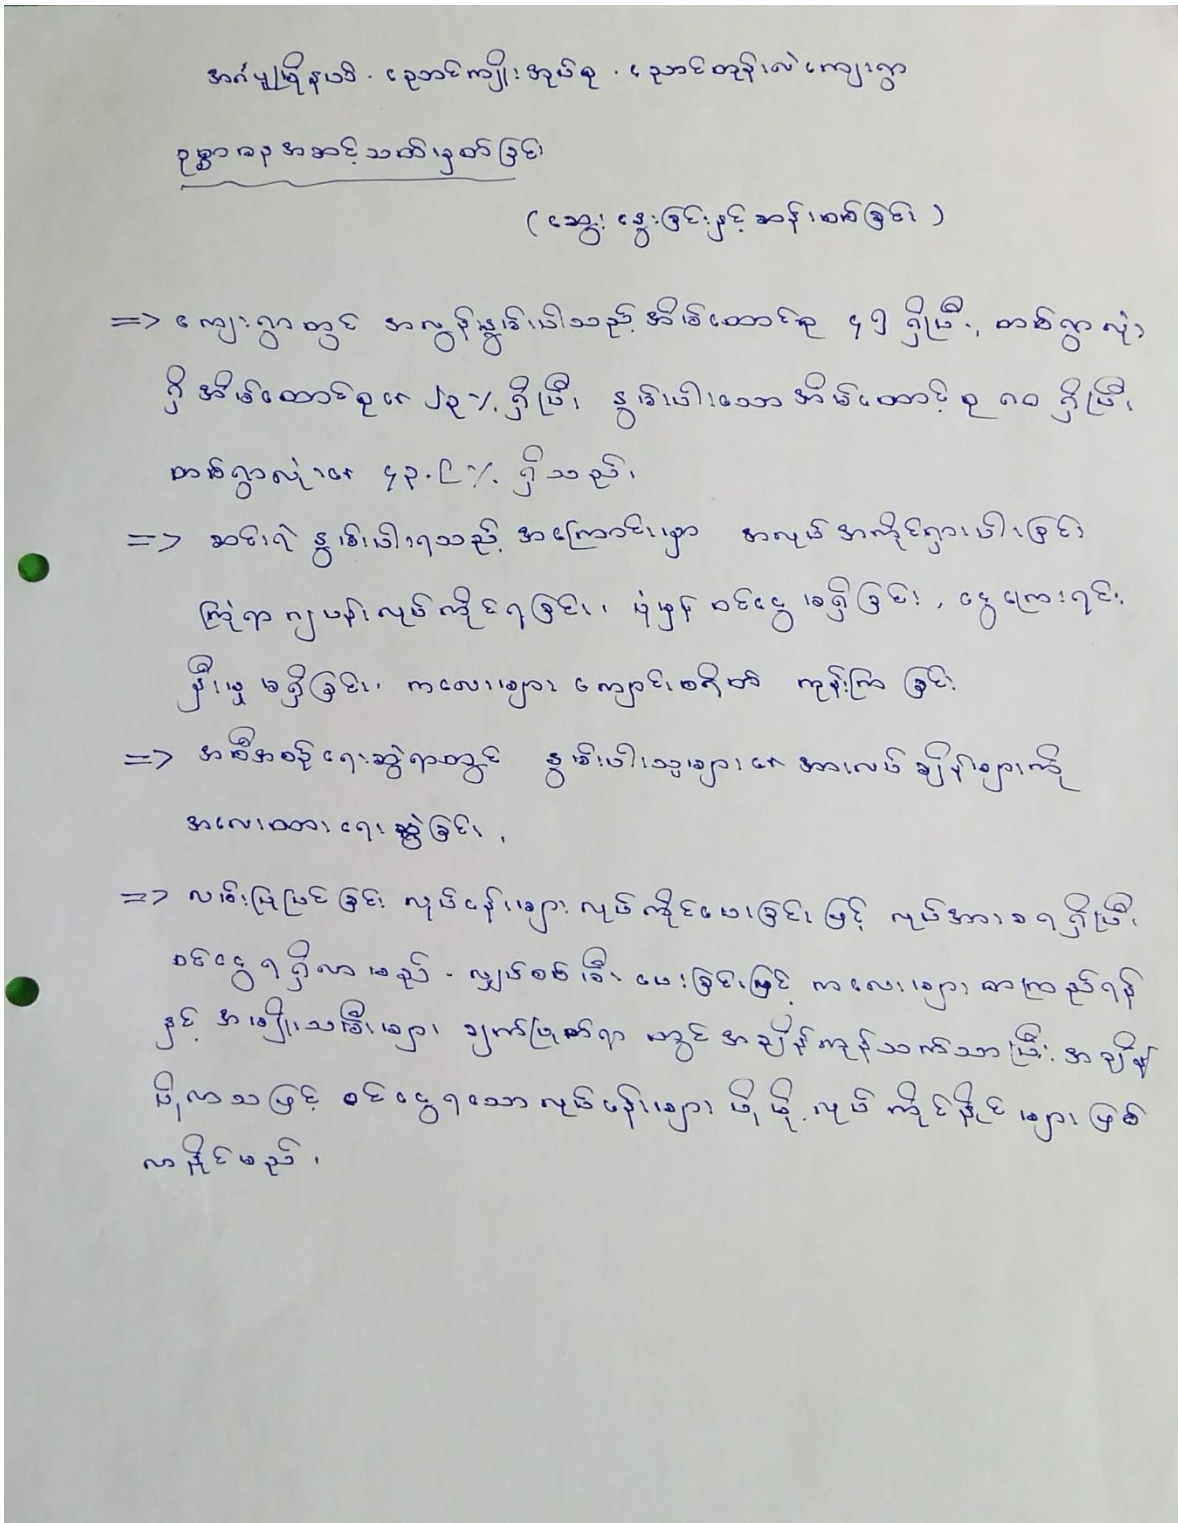 အင်္ဂပူမြို့နယ် ။ ညောင်ကျိုးအုပ်စု ။ ညောင်တုန်းလဲကျေးရွာ
ဥစ္စာဓနအဆင့်သတ်မှတ်ခြင်း
(ဆွေးနွေးခြင်းနှင့်ဆန်းစစ်ခြင်း)
=> ကျေးရွာတွင် အလွန်နွမ်းပါးသည့်အိမ်ထောင်စု ၄၅ ရှိပြီး, တစ်ရွာလုံး
ရှိ အိမ်ထောင်စု၏ ၂၃% ရှိပြီး နွမ်းပါးသောအိမ်ထောင့်စု ၈၀ ရှိပြီး
တစ်ရွာလုံး၏ ၄၃.၆% ရှိသည်။
=> ဆင်းရဲ နွမ်းပါးရသည့် အကြောင်းမှာ အလုပ်အကိုင်ရှားပါးခြင်း
ကြုံရာကျပန်းလုပ်ကိုင်ရခြင်း၊ ပုံမှန် ဝင်ငွေမရှိခြင်း, ငွေကြေးရင်း
နှီးမှုမရှိခြင်း၊ ကလေးများ ကျောင်းစရိတ် ကုန်းကြခြင်း
=> အစီအစဉ်ရေးဆွဲရာတွင် နွမ်းပါးသူများ၏ အားလပ်ချိန်များကို
အလေးထားရေးဆွဲခြင်း,
=> လမ်းပြုပြင်ခြင်း လုပ်ငန်းများ လုပ်ကိုင်ပေးခြင်းဖြင့် လုပ်အားခရရှိပြီး
ဝင်ငွေရရှိလာမည် - လျှပ်စစ်မီး ပေးခြင်းဖြင့် ကလေးများ စာကြည့်ရန်
နှင့် အမျိုးသမီးများ ချက်ပြုတ်ရာ တွင်အချိန်ကုန်သက်သာပြီး အချိန်
ပိုလာသဖြင့် ဝင်ငွေရသောလုပ်ငန်းများ ပိုမို လုပ်ကိုင်နိုင်များဖြစ်
လာနိုင်မည်။